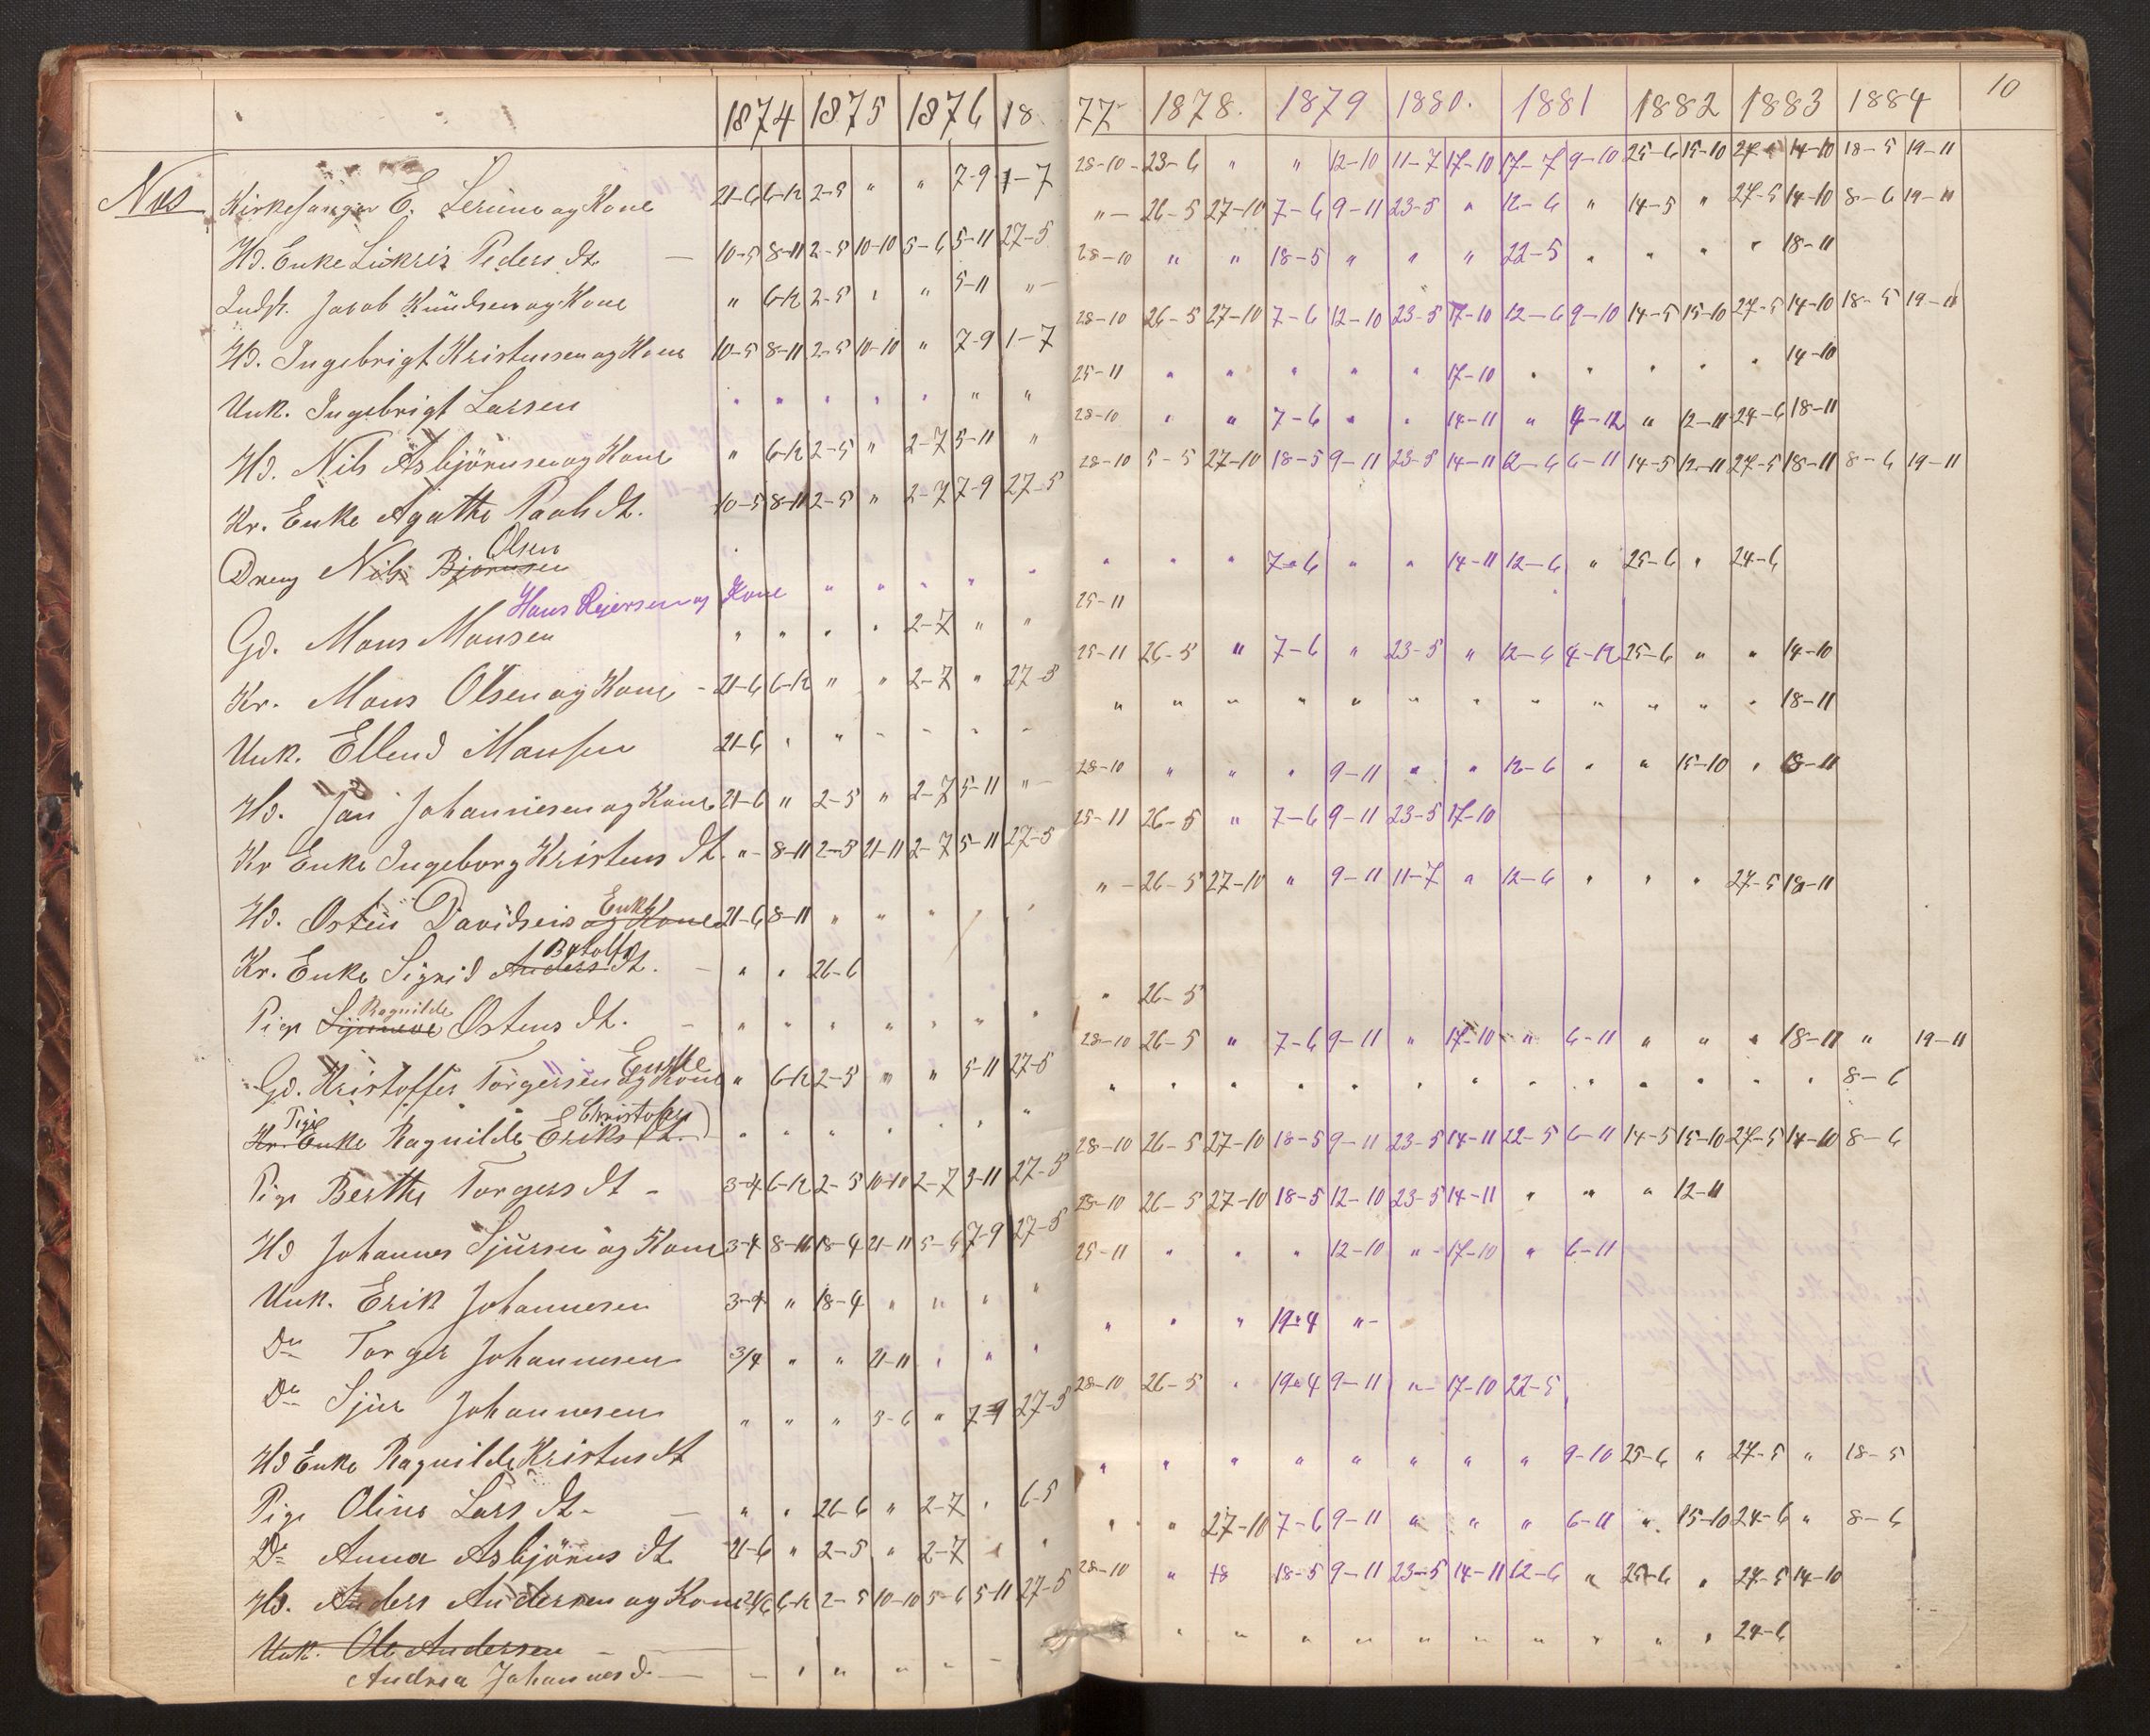 1874 1875 1876 1877 1878. 1879 1880. 1881 1882 1883 1884 10
Næs Kirkesanger E. og Kone 21-6 6-12 2-5 " " 7-9 1-7 28-10 23-6 " " 12-10 11-7 17-10 17-7 9-10 25-6 15-10 14-10 18-5 19-11
Hd. Enke Peders Dt. 10-5 8-11 2-5 10-10 5-6 5-11 27-5 " 26-5 27-10 7-6 9-11 23-5 " 12-6 " 14-5 " 27-5 14-10 8-6 19-11
Indst. Jacob Knudsen og Kone " 6-12 2-5 " " 5-11 " 28-10 " " 18-5 " " " 22-5 " " " " 18-11
Hd. Ingebrigt Kristensen og Kone 10-5 8-11 2-5 10-10 " 7-9 1-7 28-10 26-5 27-10 7-6 12-10 23-5 17-10 12-6 9-10 14-5 15-10 27-5 14-10 18-5 19-11
Unk. Ingebrigt Larsen " " " " " " " 25-11 " " " " " 17-10 " " " " " 14-10
Hd. Nils Asbjörnsen og Kone " 6-12 2-5 " 2-7 5-11 " 28-10 " " 7-6 " " 14-11 " 4-12 " 12-11 24-6 18-11
Kr. Enke Agathe Paals Dt. 10-5 8-11 2-5 " 2-7 7-9 27-5 28-10 5-5 27-10 18-5 9-11 23-5 14-11 12-6 6-11 14-5 12-11 27-5 18-11 8-6 19-11
Olsen
Dreng Nils Björnsen " " " 7-6 " " 14-11 12-6 " 25-6 " 24-6
Hans Reiersen og Kone " " " " " 25-11
Gd. Mons Monsen " " " " 2-7 " " 25-11 26-5 " 7-6 " 23-5 " 12-6 4-12 25-6 " " 14-10
Kr. Mons Olsen og Kone 21-6 6-12 " " 2-7 " 27-5 " " " " " " " " " " " " 18-11
Unk. Ellend Monsen 21-6 " " " " " " 28-10 " " " 9-11 " " 12-6 " " 15-10 " 18-11
Hd. Jan Johannesen og Kone 21-6 " 2-5 " 2-7 5-11 " 25-11 26-5 " 7-6 9-11 23-5 17-10
Kr Enke Ingeborg Kristens Dt. " 8-11 2-5 21-11 2-7 5-11 27-5 " 26-5 27-10 " 9-11 11-7 " 12-6 " " " 27-5 18-11
Enke
Hd. Osten Davidsens og Kone 21-6 8-11 " " "
Botolfs
Kr. Enke Sigrid Anders Dt. " " 26-6 " 26-5
Ragnilde
Pige Ostens Dt. " " " " " " " 28-10 26-5 " 7-6 9-11 " 17-10 " 6-11 " " " 18-11 " 19-11
Enke
Gd. Kristoffer Torgersen og Kone " 6-12 2-5 " " 5-11 27-5 " " " " " " " " " " " " " 8-6
Pige Christofer
Kr. Enke Ragnilde Eriks Dt. " " " " " " " 28-10 26-5 27-10 18-5 9-11 23-5 14-11 22-5 6-11 14-5 15-10 27-5 14-10 8-6
Pige Berthe Torgers Dt 3-4 6-12 2-5 10-10 2-7 5-11 27-5 28-10 26-5 27-10 18-5 12-10 23-5 14-11 " " " 12-11
Hd Johannes Sjursen og Kone 3-4 8-11 18-4 21-11 5-6 7-9 27-5 25-11 " " " 12-10 " 17-10 " 6-11
Unk. Erik Johannesen 3-4 " 18-4 " " " " " " " 19-4 "
Do Torger Johannesen 3/4 " " 21-11 " " " 28-10 26-5 " 19-4 9-11 " 17-10 22-5
Do Sjur Johannesen " " " 3-6 " 7-9 27-5
Hd Enke Ragnilde Kristens Dt " " " " " " " " 9-10 25-6 " 27-5 " 18-5
Pige Oline Lars Dt " " 26-6 " 2-7 " 6-5 " " 27-10 7-6 9-11 " " " 6-11 " 15-10 24-6 " 8-6
Do Anna Asbjörns Dt 21-6 " 2-5 " 2-7 " " 28-10 " 18 18-5 9-11 23-5 14-11 12-6 " 25-6 " 27-5 14-10
Hd. Anders Andersen og Kone 21/6 6-12 2-5 10-10 5-6 5-11 27-5 " " " " " " " " " " 24-6
Unk. Ole Andersen
Andrea Johannes d. " " " " "